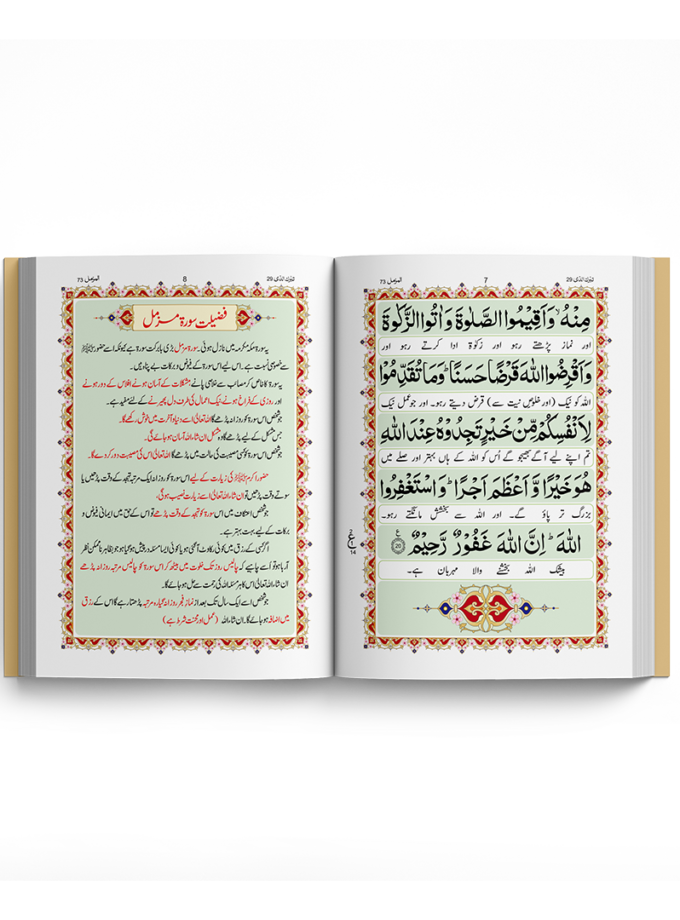 تبٰرك الذی 29
7
المزمل 73
مِنْهُ ۙ وَاَقِيْمُوا الصَّلٰوةَ وَاٰتُوا الزَّكٰوةَ
اور نماز پڑھتے رہو اور زکوٰۃ ادا کرتے رہو اور
وَاَقْرِضُوا اللّٰهَ قَرْضًا حَسَنًا ؕ وَمَا تُقَدِّمُوْا
اللہ کو نیک (اور خلوصِ نیت سے) قرض دیتے رہو۔ اور جو عمل نیک
لِاَنْفُسِكُمْ مِّنْ خَيْرٍ تَجِدُوْهُ عِنْدَ اللّٰهِ
تم اپنے لیے آگے بھیجو گے اُس کو اللہ کے ہاں بہتر اور صلے میں
هُوَ خَيْرًا وَّاَعْظَمَ اَجْرًا ؕ وَاسْتَغْفِرُوا
بزرگ تر پاؤ گے۔ اور اللہ سے بخشش مانگتے رہو۔
اللّٰهَ ؕ اِنَّ اللّٰهَ غَفُوْرٌ رَّحِيْمٌ ۝20
بیشک اللہ بخشنے والا مہربان ہے۔
ع
14
تبٰرك الذی 29
8
المزمل 73
فضیلت سورۃ مزمل
یہ سورۃ مکہ مکرمہ میں نازل ہوئی۔ سورۃ مزمل بڑی بابرکت سورۃ ہے کیونکہ اسے حضور ﷺ
سے خصوصی نسبت ہے۔ اس لیے اس سورۃ کے فیوض و برکات بے پناہ ہیں۔
یہ سورۃ کا خاص کر مصائب سے خلاصی پانے مشکلات کے آسان ہونے افلاس کے دور ہونے
اور روزی کے فراخ ہونے نیک اعمال کی طرف دل پھیرنے کے لئے مفید ہے۔
جو شخص اس سورۃ کو روزانہ پڑھے گا اللہ تعالیٰ اسے دنیا و آخرت میں خوش رکھے گا۔
جس مشکل کے لیے پڑھے گا وہ مشکل ان شاء اللہ آسان ہو جائے گی۔
جو شخص اس سورۃ کو کسی مصیبت کی حالت میں پڑھے گا اللہ تعالیٰ اس کی مصیبت دور کر دے گا۔
حضور اکرم ﷺ کی زیارت کے لیے اس سورۃ کو روزانہ ایک مرتبہ تہجد کے وقت پڑھیں یا
سوتے وقت پڑھیں تو ان شاء اللہ تعالیٰ اسے زیارت نصیب ہوگی۔
جو شخص اعتکاف میں اس سورۃ کو تہجد کے وقت پڑھے تو اس کے حق میں ایمانی فیوض و
برکات کے لیے بہت بہتر ہے۔
اگر کسی کے رزق میں کوئی رکاوٹ آگئی ہو یا کوئی ایسا مسئلہ درپیش ہو گیا ہو جو بظاہر ناممکن نظر
آ رہا ہو تو اُسے چاہیے کہ چالیس روز تک خلوت میں بیٹھ کر اس سورۃ کو چالیس مرتبہ روزانہ پڑھے
ان شاء اللہ تعالیٰ اس کا ہر مسئلہ اللہ کی رحمت سے حل ہو جائے گا۔
جو شخص اسے ایک سال تک بعد از نماز فجر روزانہ گیارہ مرتبہ پڑھتا رہے گا اس کے رزق
میں اضافہ ہو جائے گا۔ ان شاء اللہ (عمل اور محنت شرط ہے)